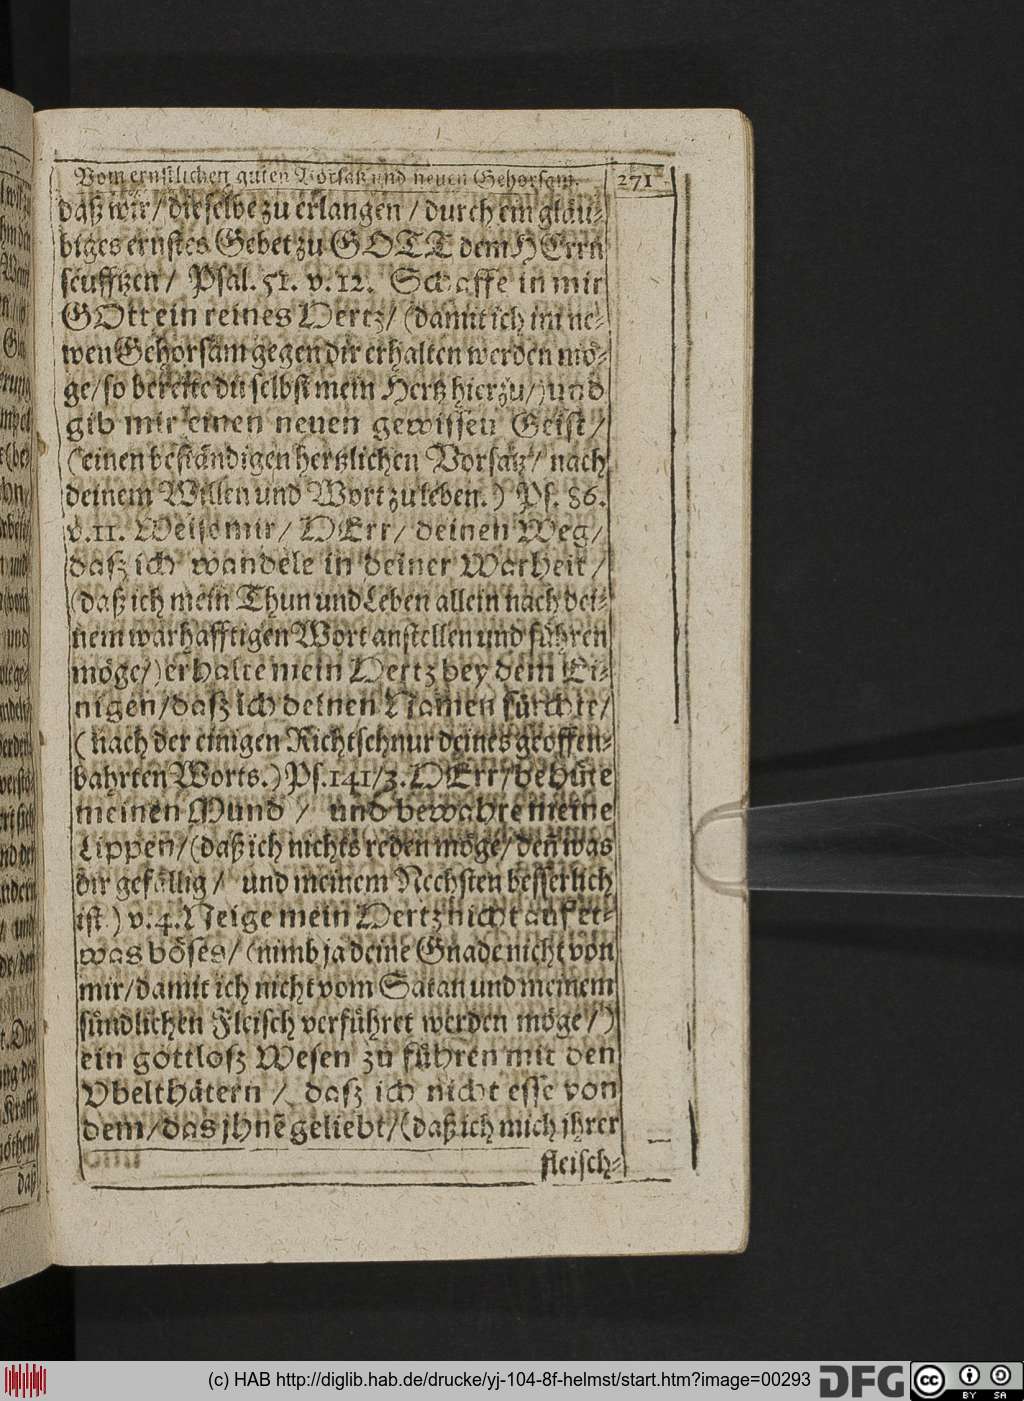 Vom ernstlichen guten Vorsatz und neuen Gehorsam. 271
daß wir/ dieselbe zu erlangen / durch ein gläu-
biges ernstes Gebet zu GOTT dem HErrn
seufftzen/ Psal. 51. v. 12. Schaffe in mir
GOtt ein reines Hertz/ (damit ich im ne-
wen Gehorsam gegen dir erhalten werden mö-
ge/ so bereite du selbst mein Hertz hierzu/) und
gib mir einen neuen gewissen Geist/
(einen beständigen hertzlichen Vorsatz/ nach
deinem Willen und Wort zu leben.) Ps. 86.
v. 11. Weise mir/ HErr/ deinen Weg/
dasz ich wandele in deiner Warheit/
(daß ich mein Thun und Leben allein nach dei-
nem warhafftigen Wort anstellen und führen
möge/) erhalte mein Hertz bey dem Ei-
nigen/ dasz ich deinen Namen fürchte/
(nach der einigen Richtschnur deines geoffen-
bahrten Worts.) Ps. 141/3. HErr/ behüte
meinen Mund / und bewahre meine
Lippen/ (daß ich nichts reden möge/ den was
dir gefällig / und meinem Nechsten besserlich
ist) v. 4. Neige mein Hertz nicht auf et-
was böses/ (nimb ja deine Gnade nicht von
mir/ damit ich nicht vom Satan und meinem
sündlichen Fleisch verführet werden möge/)
ein gottlosz Wesen zu führen mit den
Vbelthätern / dasz ich nicht esse von
dem/ das jhnē geliebt/ (daß ich mich jhrer
fleisch-
(c) HAB http://diglib.hab.de/drucke/yj-104-8f-helmst/start.htm?image=00293
DFG
cc BY SA